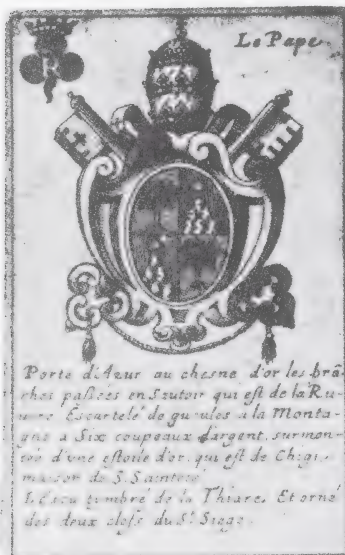 Le Pape
Porte d'Azur au chesne d'or les brã
ches passées en Sautoir qui est de la Ru-
uere Escartelé de gueules a la Monta-
gne a Six coupeaux d'argent, surmon-
tée d'une estoile d'or, qui est de Chigi,
maison de S. Sainteté
L'Escu timbré de la Thiare, Et orné
des deux clefs du St. Siege.